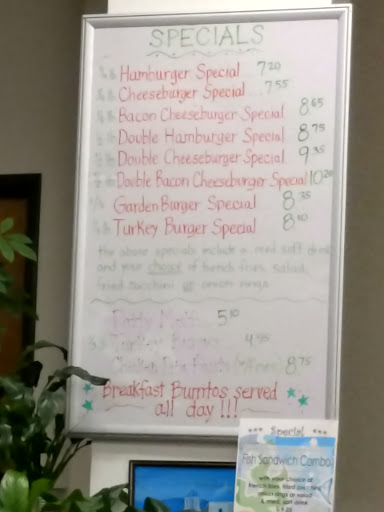 SPECIALS
Hamburger Special 7.20
Cheeseburger Special 7.55
Bacon Cheeseburger Special 8.65
Double Hamburger Special 8.75
Double Cheeseburger Special 9.35
Double Bacon Cheeseburger Special 10.20
Garden Burger Special 8.35
Turkey Burger Special
the above specials include a med soft drink
and your choice of french fries, salad,
fried zucchini or onion rings
Patty Melt 5.10
4.95
8.75
Breakfast Burritos served
all day!!!
*** Special ***
Fish Sandwich Combo
with your choice of
french fries, fried zucchini,
onion rings or salad
& med. soft drink